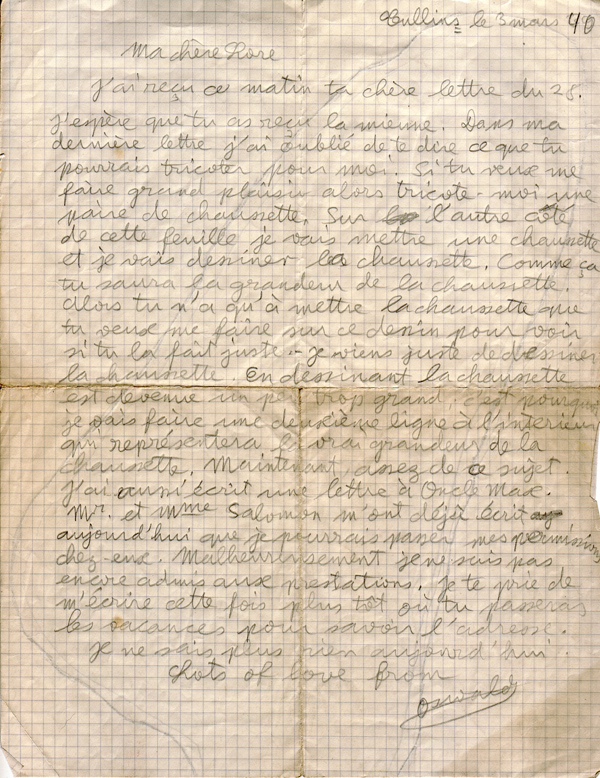 Cullins le 3 mars 40
Ma chère Lore
J'ai reçu ce matin ta chère lettre du 28.
J'espère que tu as reçu la mienne. Dans ma
dernière lettre j'ai oublié de te dire ce que tu
pourrais tricoter pour moi. Si tu veux me
faire grand plaisir alors tricote-moi une
paire de chaussette. Sur l'autre côté
de cette feuille je vais mettre une chaussette
et je vais dessiner la chaussette. Comme ça
tu saura la grandeur de la chaussette.
Alors tu n'a qu'à mettre la chaussette que
tu veux me faire sur ce dessin pour voir
si tu la fait juste. - Je viens juste de dessiner
la chaussette. En dessinant la chaussette
est devenue un peu trop grand, c'est pourquoi
je vais faire une deuxième ligne à l'interieur
qui representera la vrai grandeur de la
chaussette. Maintenant assez de ce sujet.
J'ai aussi écrit une lettre à Oncle Max.
Mr. et Mme Salomon m'ont déjà écrit
aujourd'hui que je pourrais passer mes permissions
chez-eux. Malheureusement je ne suis pas
encore admis aux prestations. Je te prie de
m'écrire cette fois plus tôt où tu passeras
les vacances pour savoir l'adresse.
Je ne sais plus rien aujourd'hui.
Lots of love from
Oswald